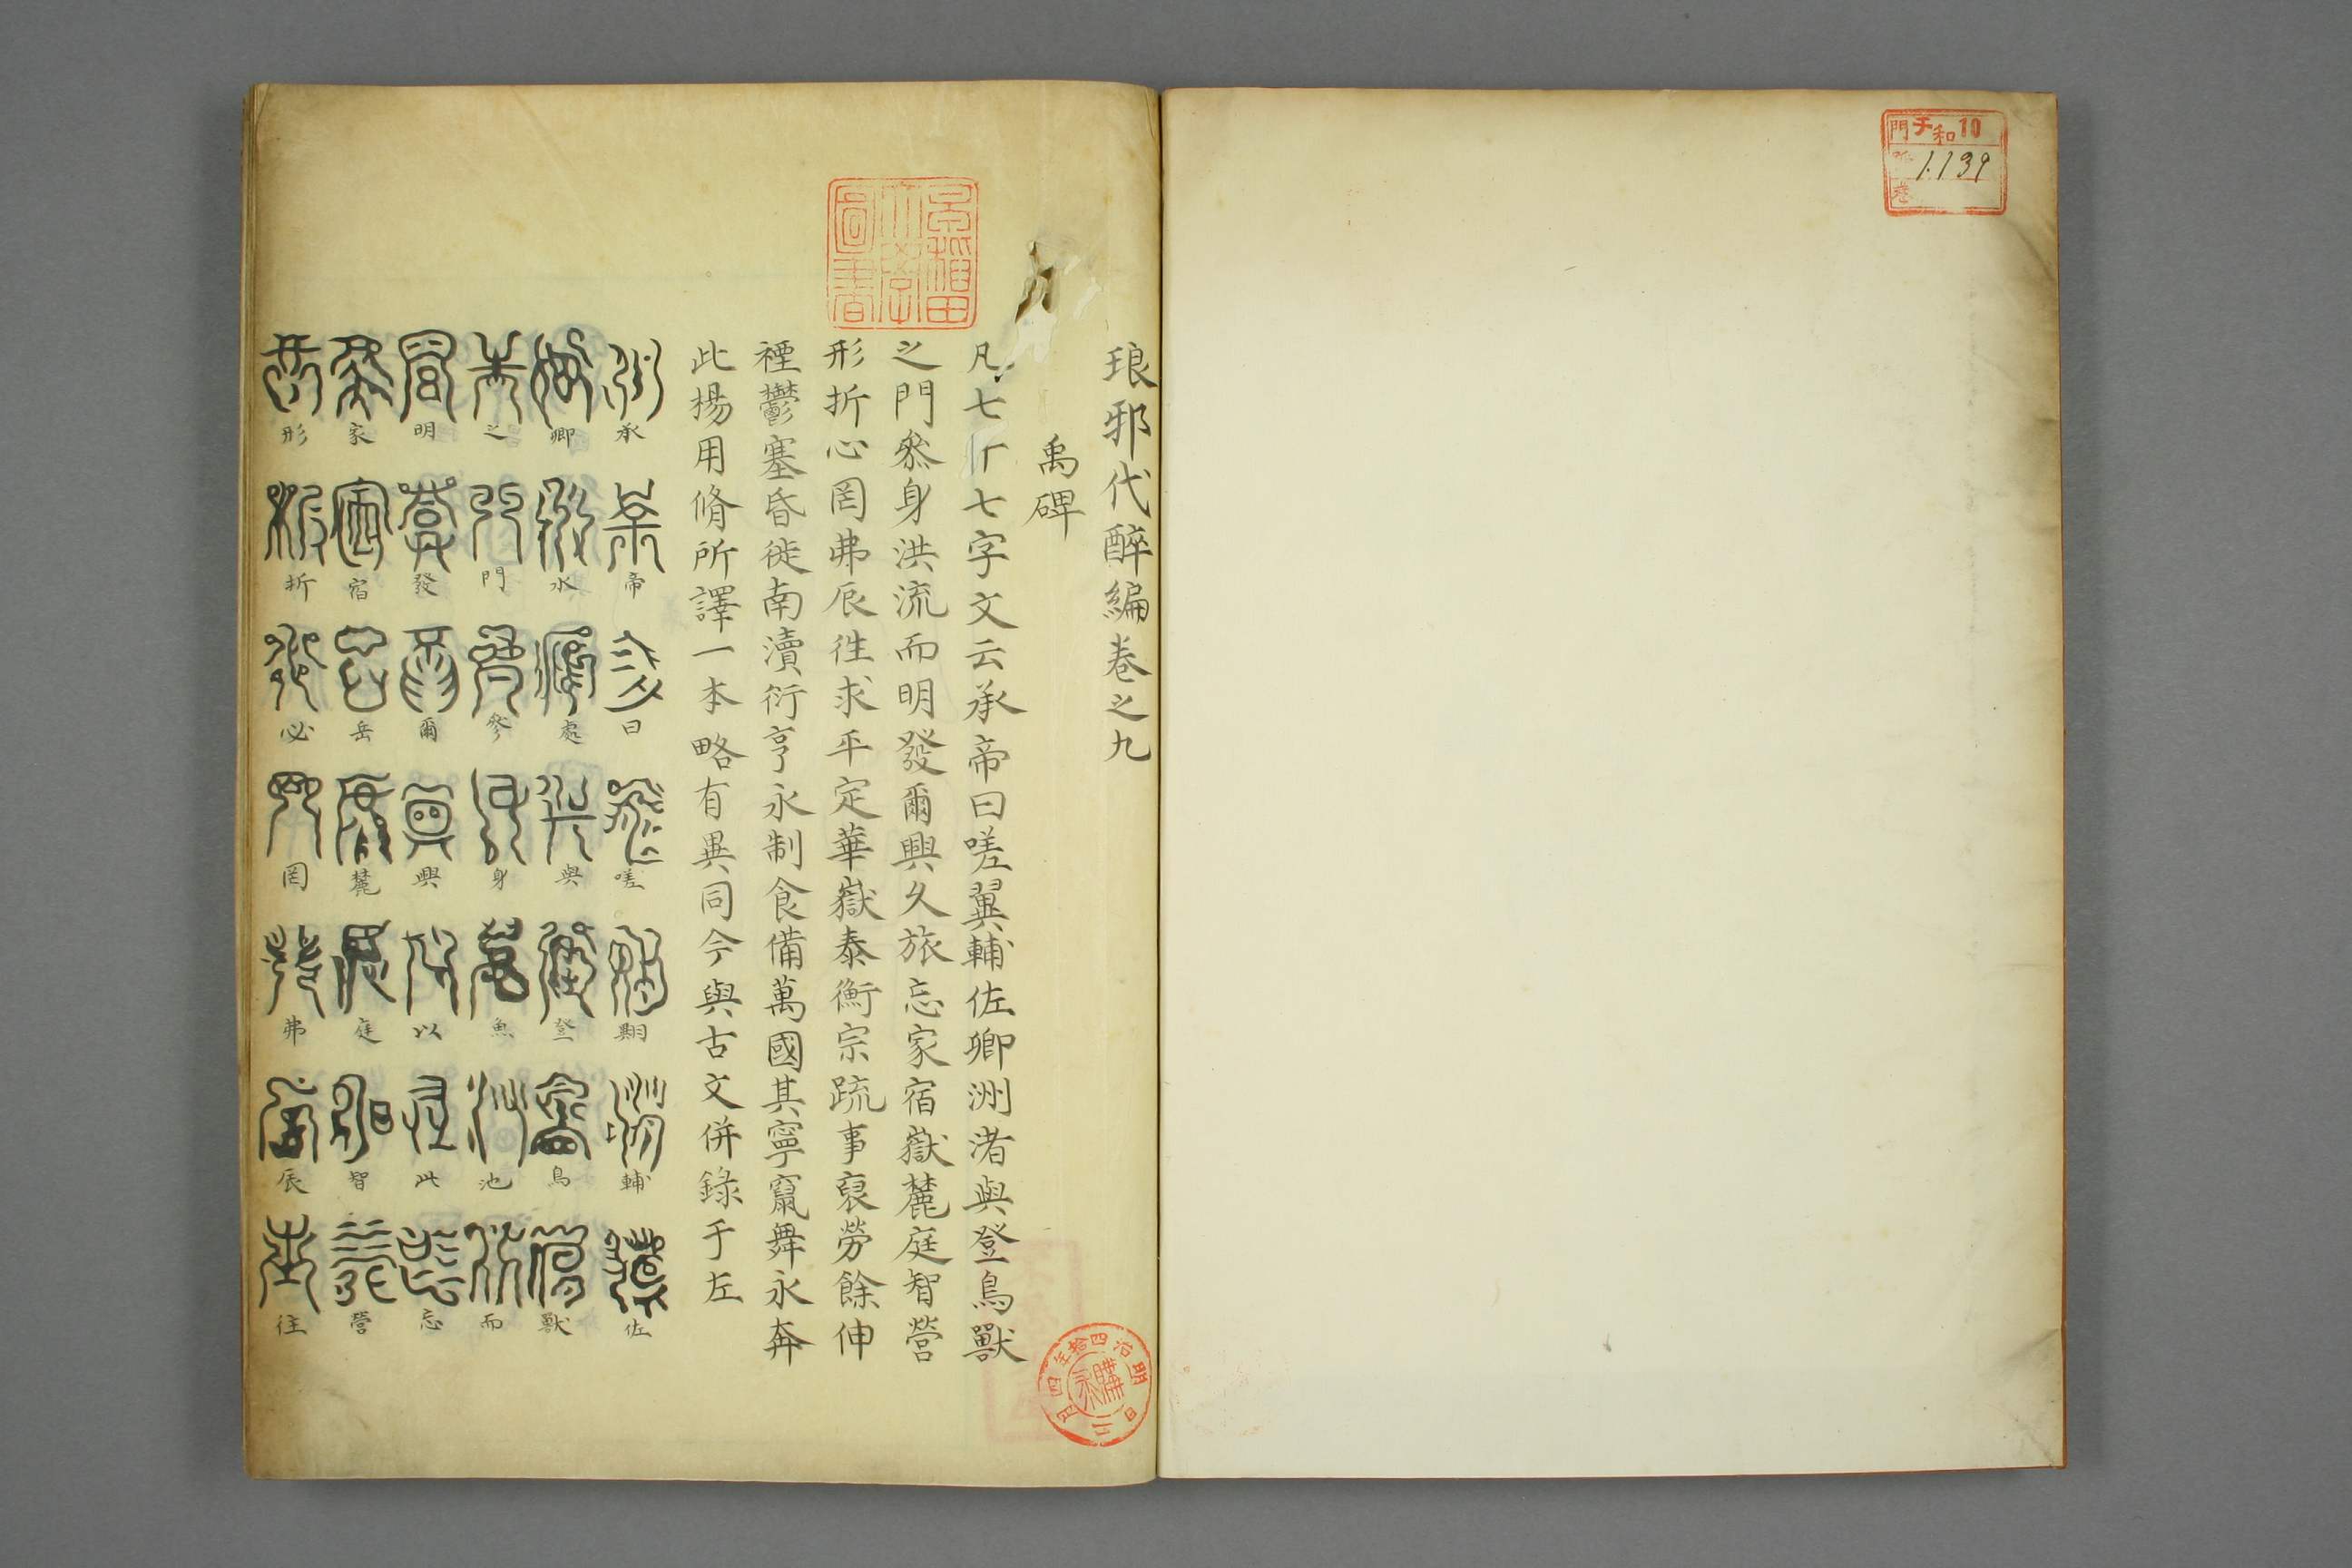 門 チ 和 10
號 1139
卷
琅邪代醉編卷之九
禹碑
凡七十七字文云承帝曰嗟翼輔佐卿洲渚與登鳥獸
之門叅身洪流而明發爾興久旅忘家宿嶽麓庭智營
形折心罔弗辰徃求平定華嶽泰衡宗疏事裒勞餘伸
禋鬱塞昏徙南瀆衍亨永制食備萬國其寧竄舞永奔
此楊用脩所譯一本略有異同今與古文併錄于左
早稲田大学圖書
明治四拾四年四月三日
購求
承帝曰嗟翔輔佐
卿水處與登鳥獸
之門參身魚池而
明發爾興以此忘
家宿岳麓庭智營
形折必罔弗辰往